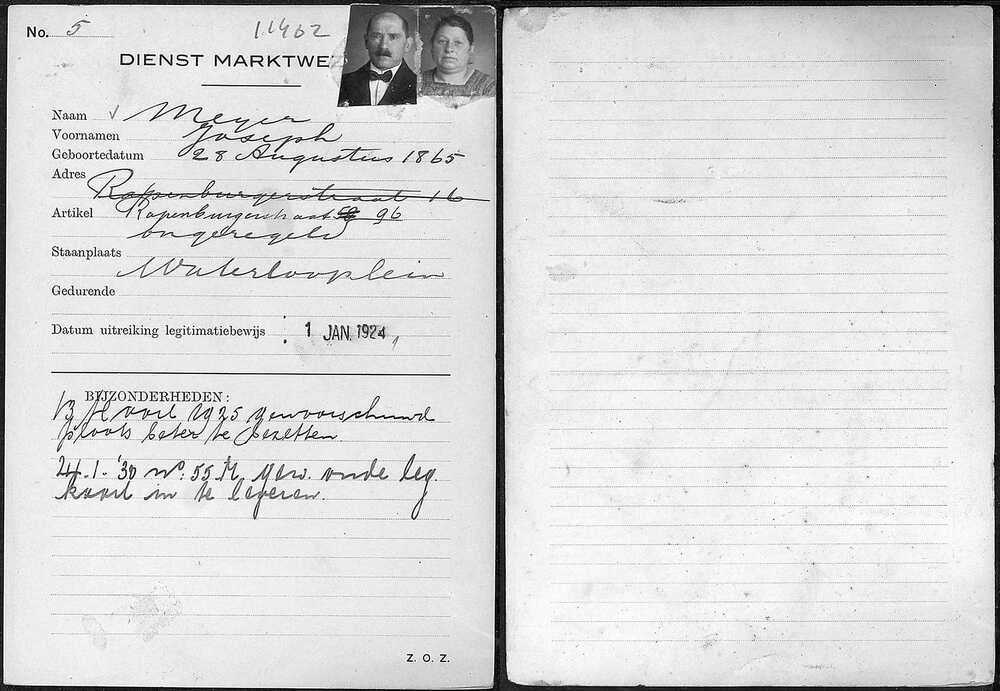 No. 5
11462
DIENST MARKTWE
Naam Meyer
Voornamen Joseph
Geboortedatum 28 Augustus 1865
Adres
Rapenburgerstraat 16
Artikel Rapenburgerstraat 96
ongeregeld
Staanplaats
Waterlooplein
Gedurende
Datum uitreiking legitimatiebewijs 1 JAN. 1924
BIJZONDERHEDEN:
13 April 1925 gewaarschuwd
plaats beter te bezetten
24.1.'30 No. 55 M. gew. oude leg.
kaart in te leveren.
Z. O. Z.